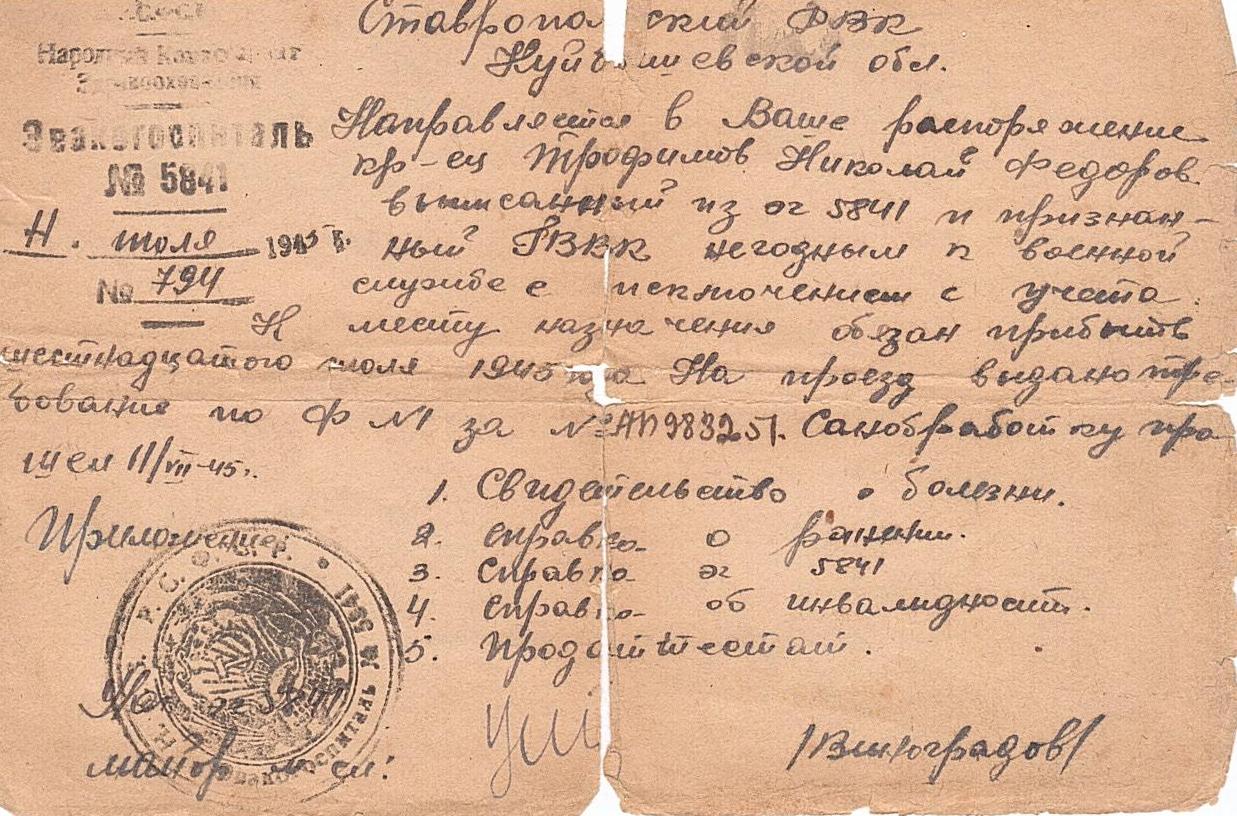 Р.С.Ф.С.Р.
Народный Комиссариат
Здравоохранения
Эвакогоспиталь
№ 5841
11. июля 1945 г.
№ 794
Ставропольский РВК
Куйбышевской обл.
Направляется в Ваше распоряжение
кр-ец Трофимов Николай Федоров
выписанный из эг 5841 и признан-
ный ГВВК негодным к военной
службе с исключением с учета.
К месту назначения обязан прибыть
шестнадцатого июля 1945 года На проезд выдано тре-
бование по Ф №1 за № АП983251. Санобработку про
шел 11/VII-45г.
Приложение:
1. Свидетельство о болезни.
2. справка о ранении.
3. Справка эг 5841
4. Справка об инвалидности.
5. Продаттестат.
Нач эг 5841
майор м/сл:
/Виноградов/
Н.К.З. Р.С.Ф.С.Р.
Эвакогоспиталь